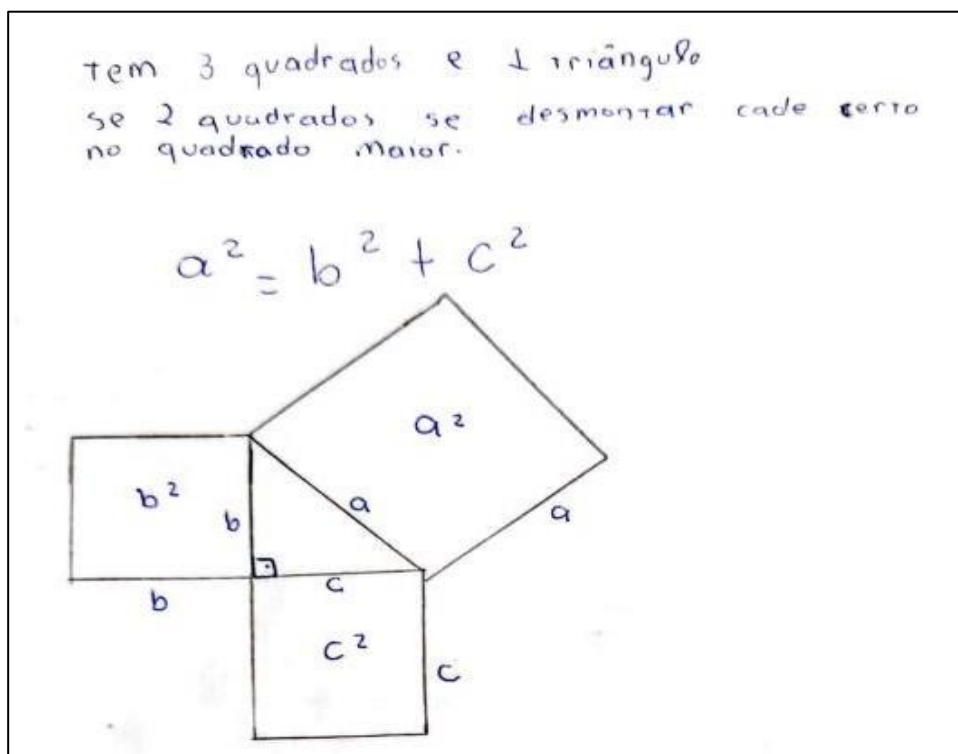 Tem 3 quadrados e 1 triângulo
se 2 quadrados se desmontar cade certo
no quadrado maior.
a² = b² + c²
a²
b²
b
a
a
c
b
c²
c